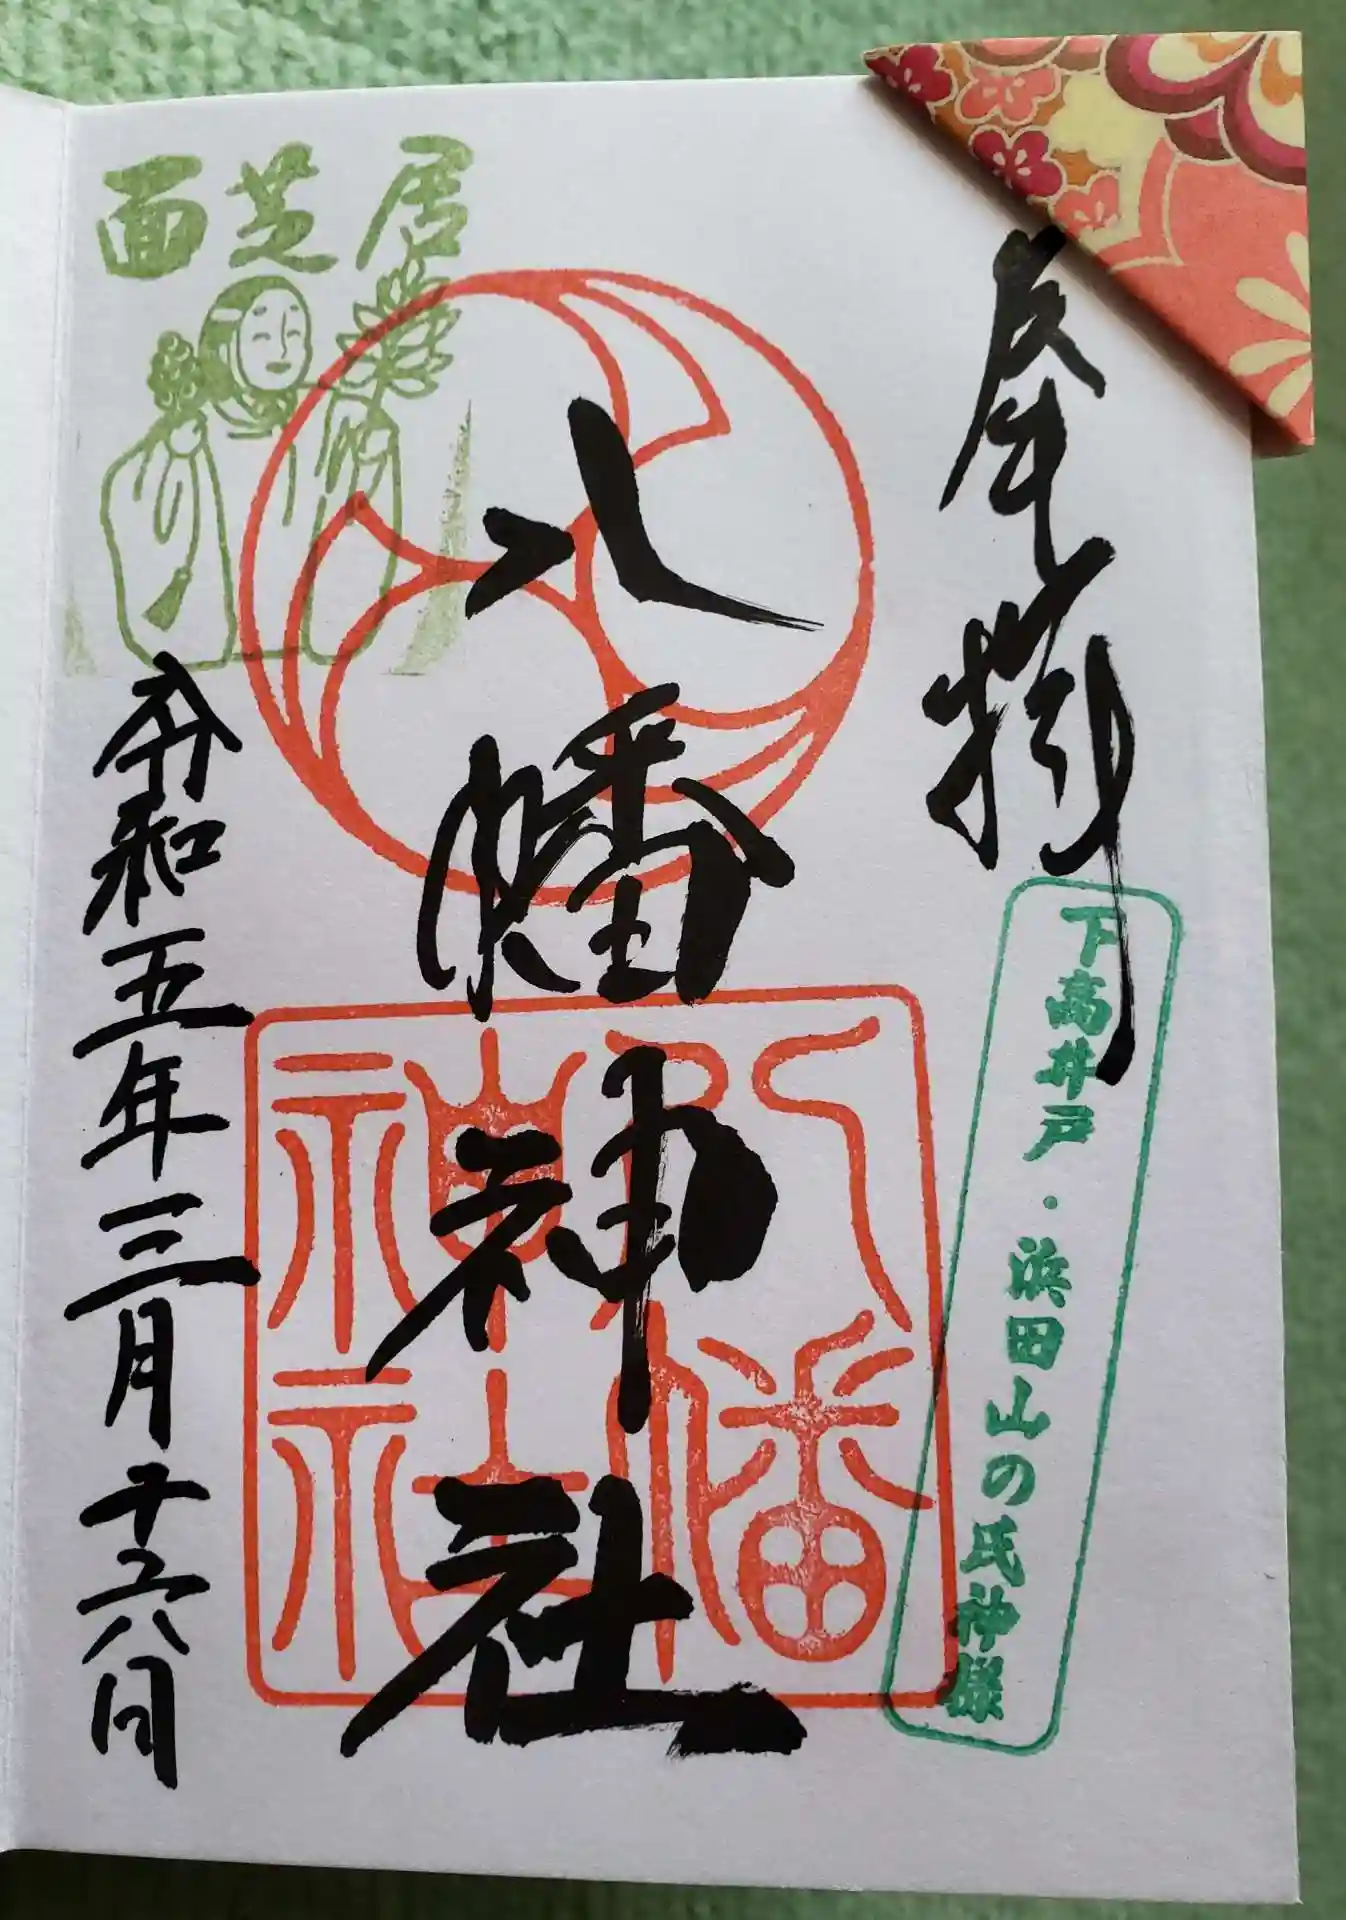 奉拝
下高井戸・浜田山の氏神様
八幡神社
八幡神社
面芝居
令和五年三月十六日